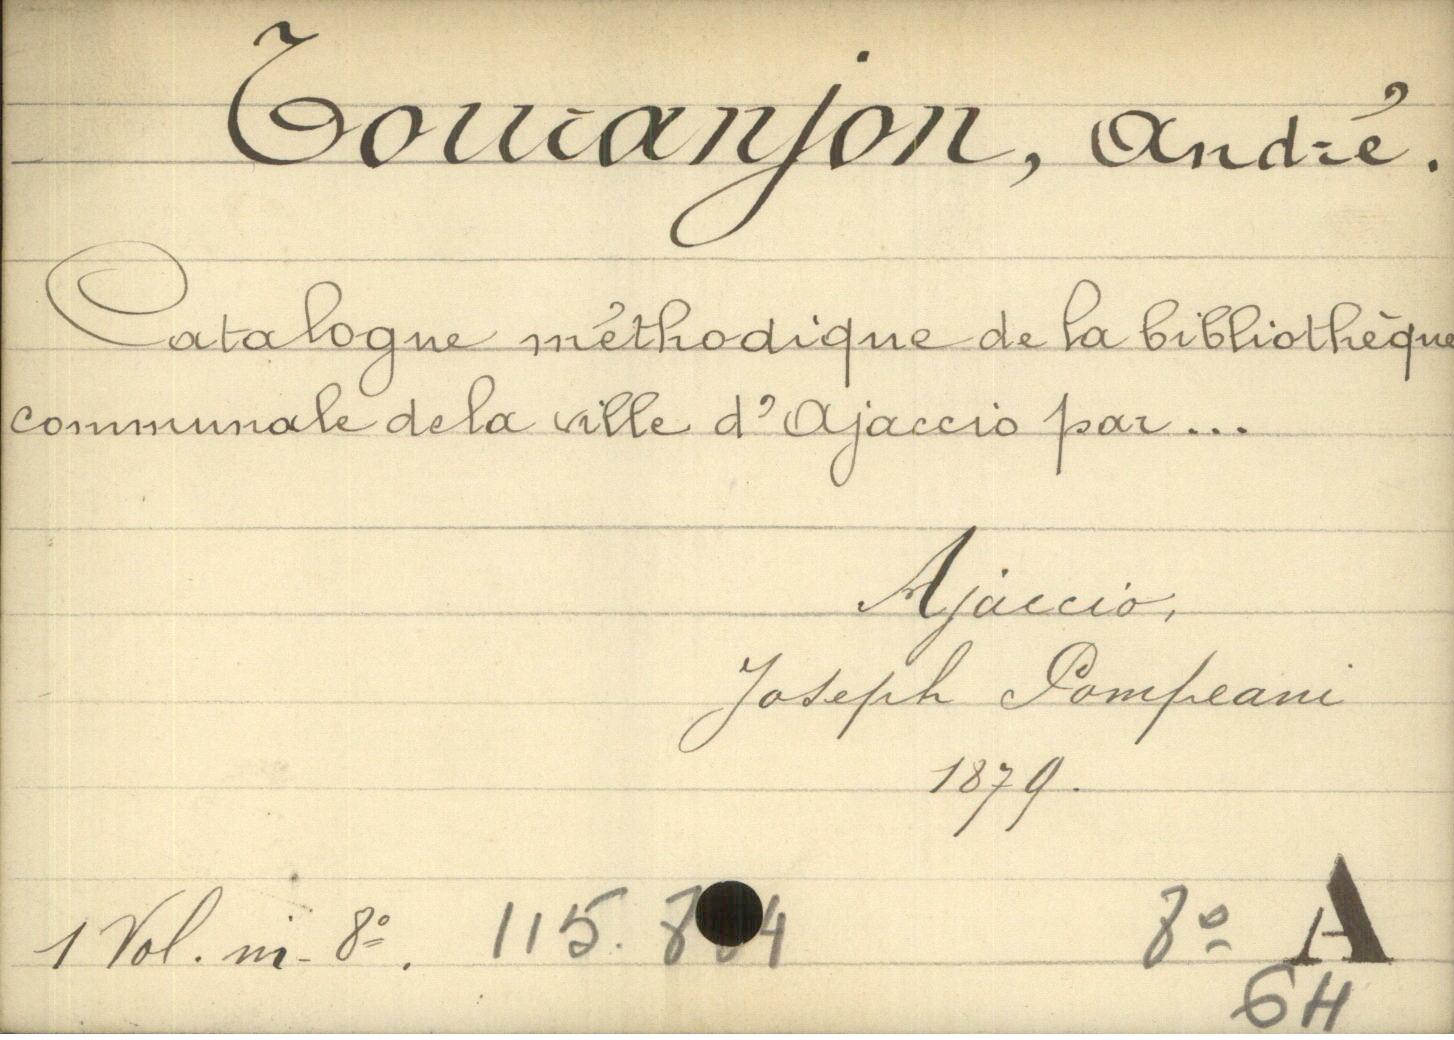 Touranjon, André.
Catalogue méthodique de la bibliothèque
communale de la ville d'Ajaccio par...
Ajaccio,
Joseph Pompeani
1879.
1 Vol. in-8º. 8º A
6H